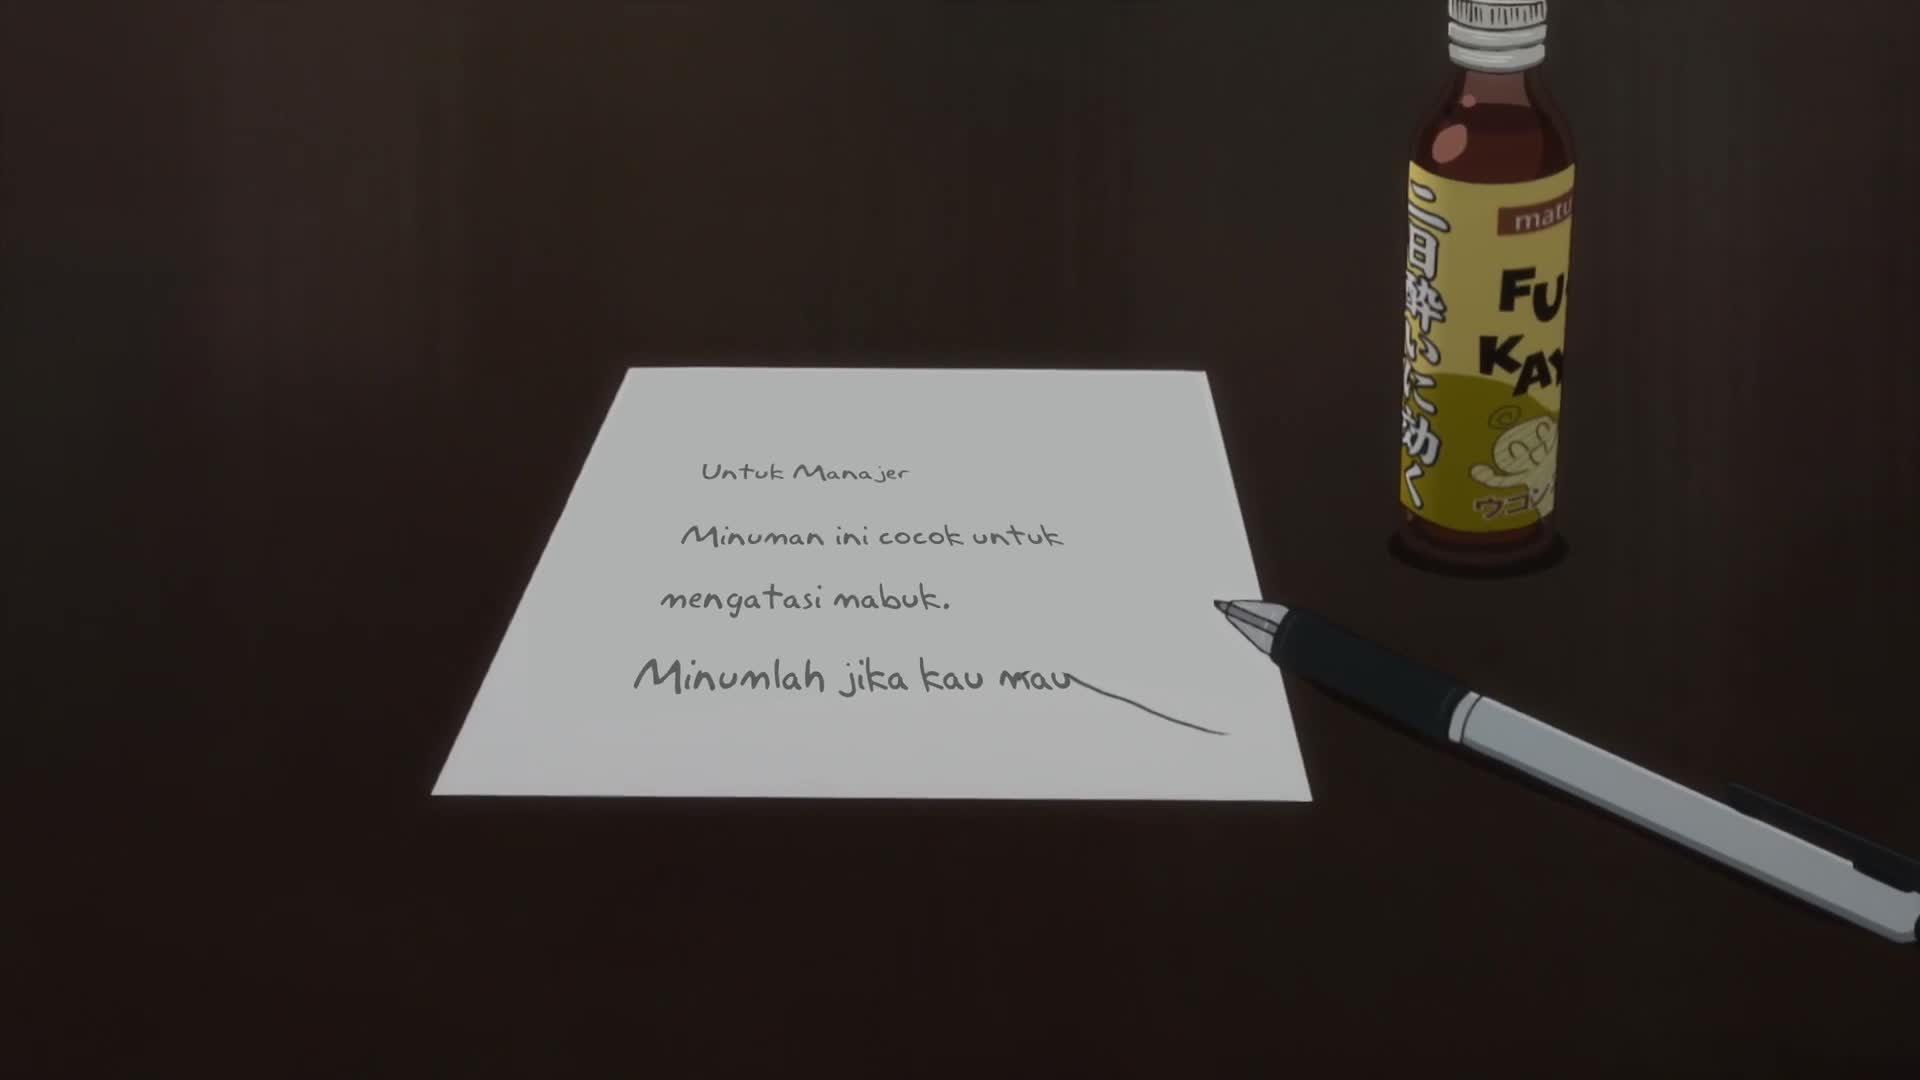 Untuk Manajer
Minuman ini cocok untuk
mengatasi mabuk.
Minumlah jika kau mau
二日酔いに効く
matu
FU
KAY
ウコン